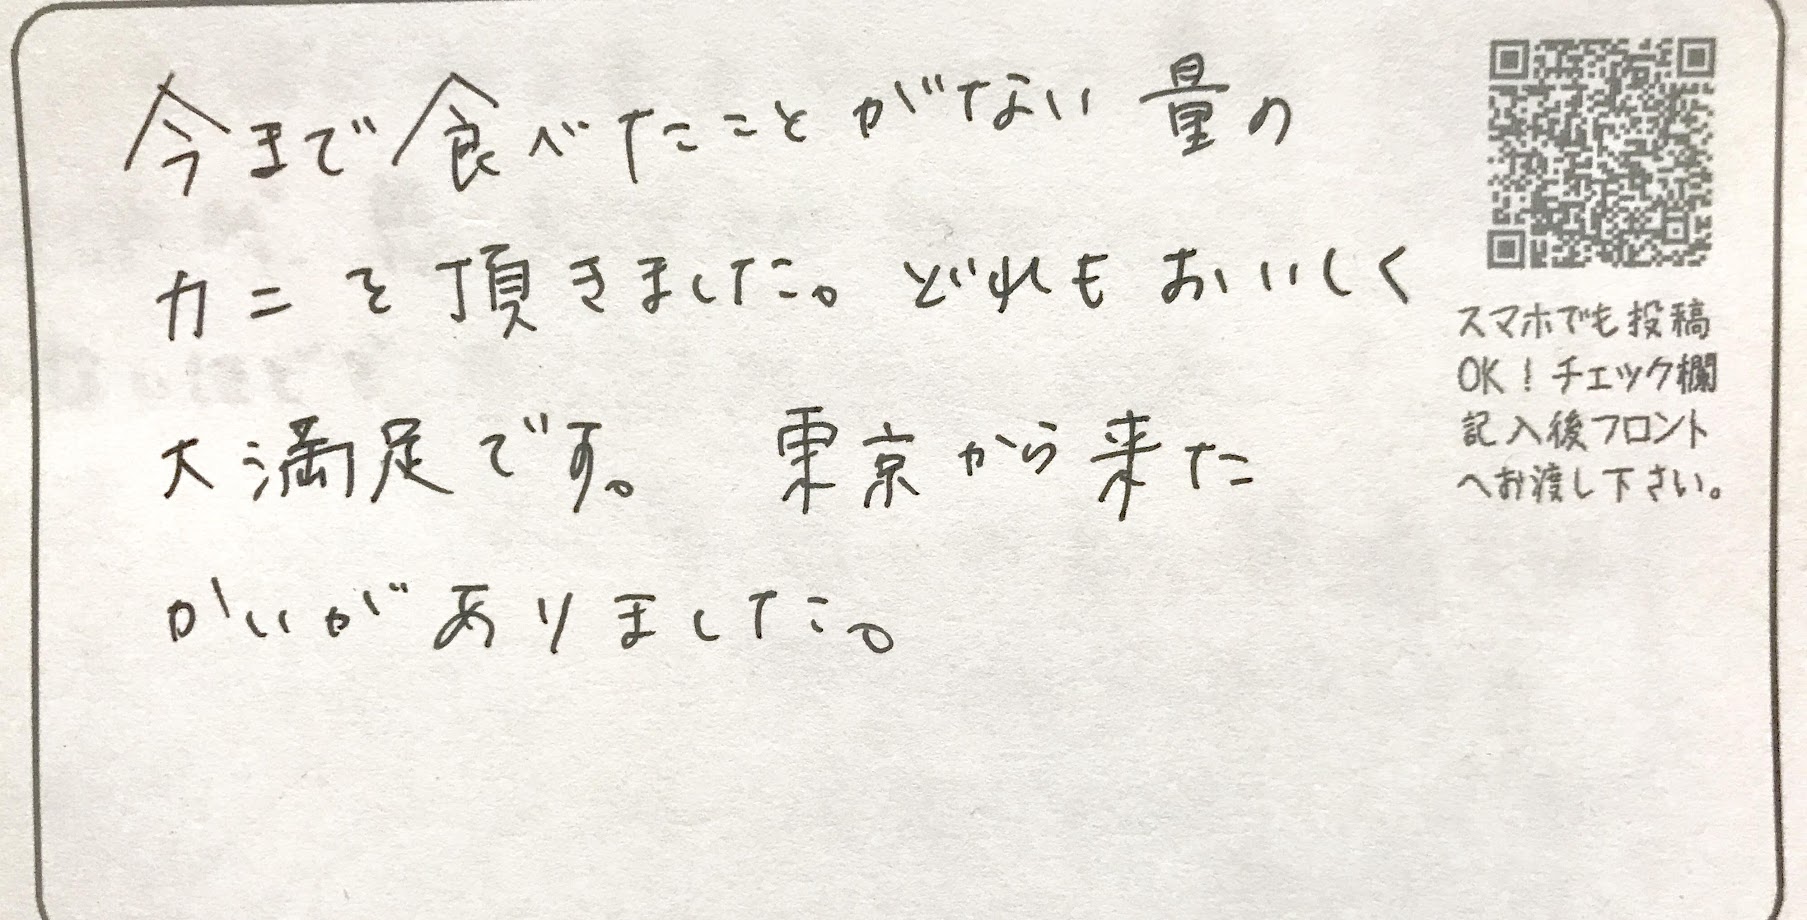 今まで食べたことがない量の
カニを頂きました。どれもおいしく
大満足です。 東京から来た
かいがありました。
スマホでも投稿
OK！チェック欄
記入後フロント
へお渡し下さい。